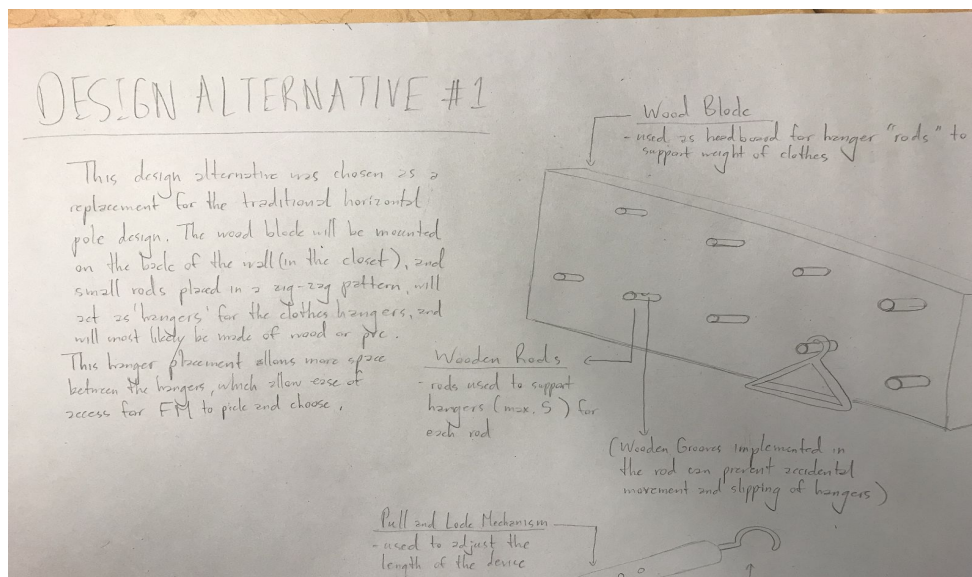 DESIGN ALTERNATIVE #1
This design alternative was chosen as a
replacement for the traditional horizontal
pole design. The wood block will be mounted
on the back of the wall (in the closet), and
small rods placed in a zig-zag pattern, will
act as 'hangers' for the clothes hangers, and
will most likely be made of wood or pvc.
This hanger placement allows more space
between the hangers, which allow ease of
access for FM to pick and choose.
Wood Block
- used as headboard for hanger "rods" to
support weight of clothes
Wooden Rods
- rods used to support
hangers (max. 5) for
each rod
(Wooden Grooves implemented in
the rod can prevent accidental
movement and slipping of hangers)
Pull and Lock Mechanism
- used to adjust the
length of the device